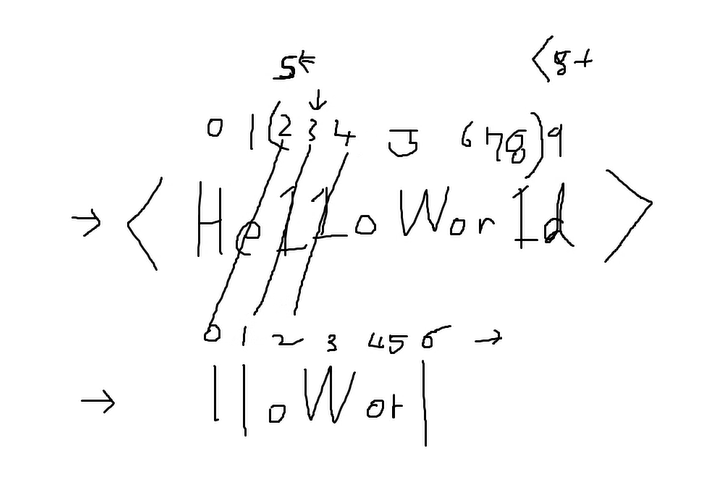 5← <8+
↓
0 1(2 3 4 5 678)9
→ <HelloWorld>
0 1 2 3 456 →
→ lloWorl